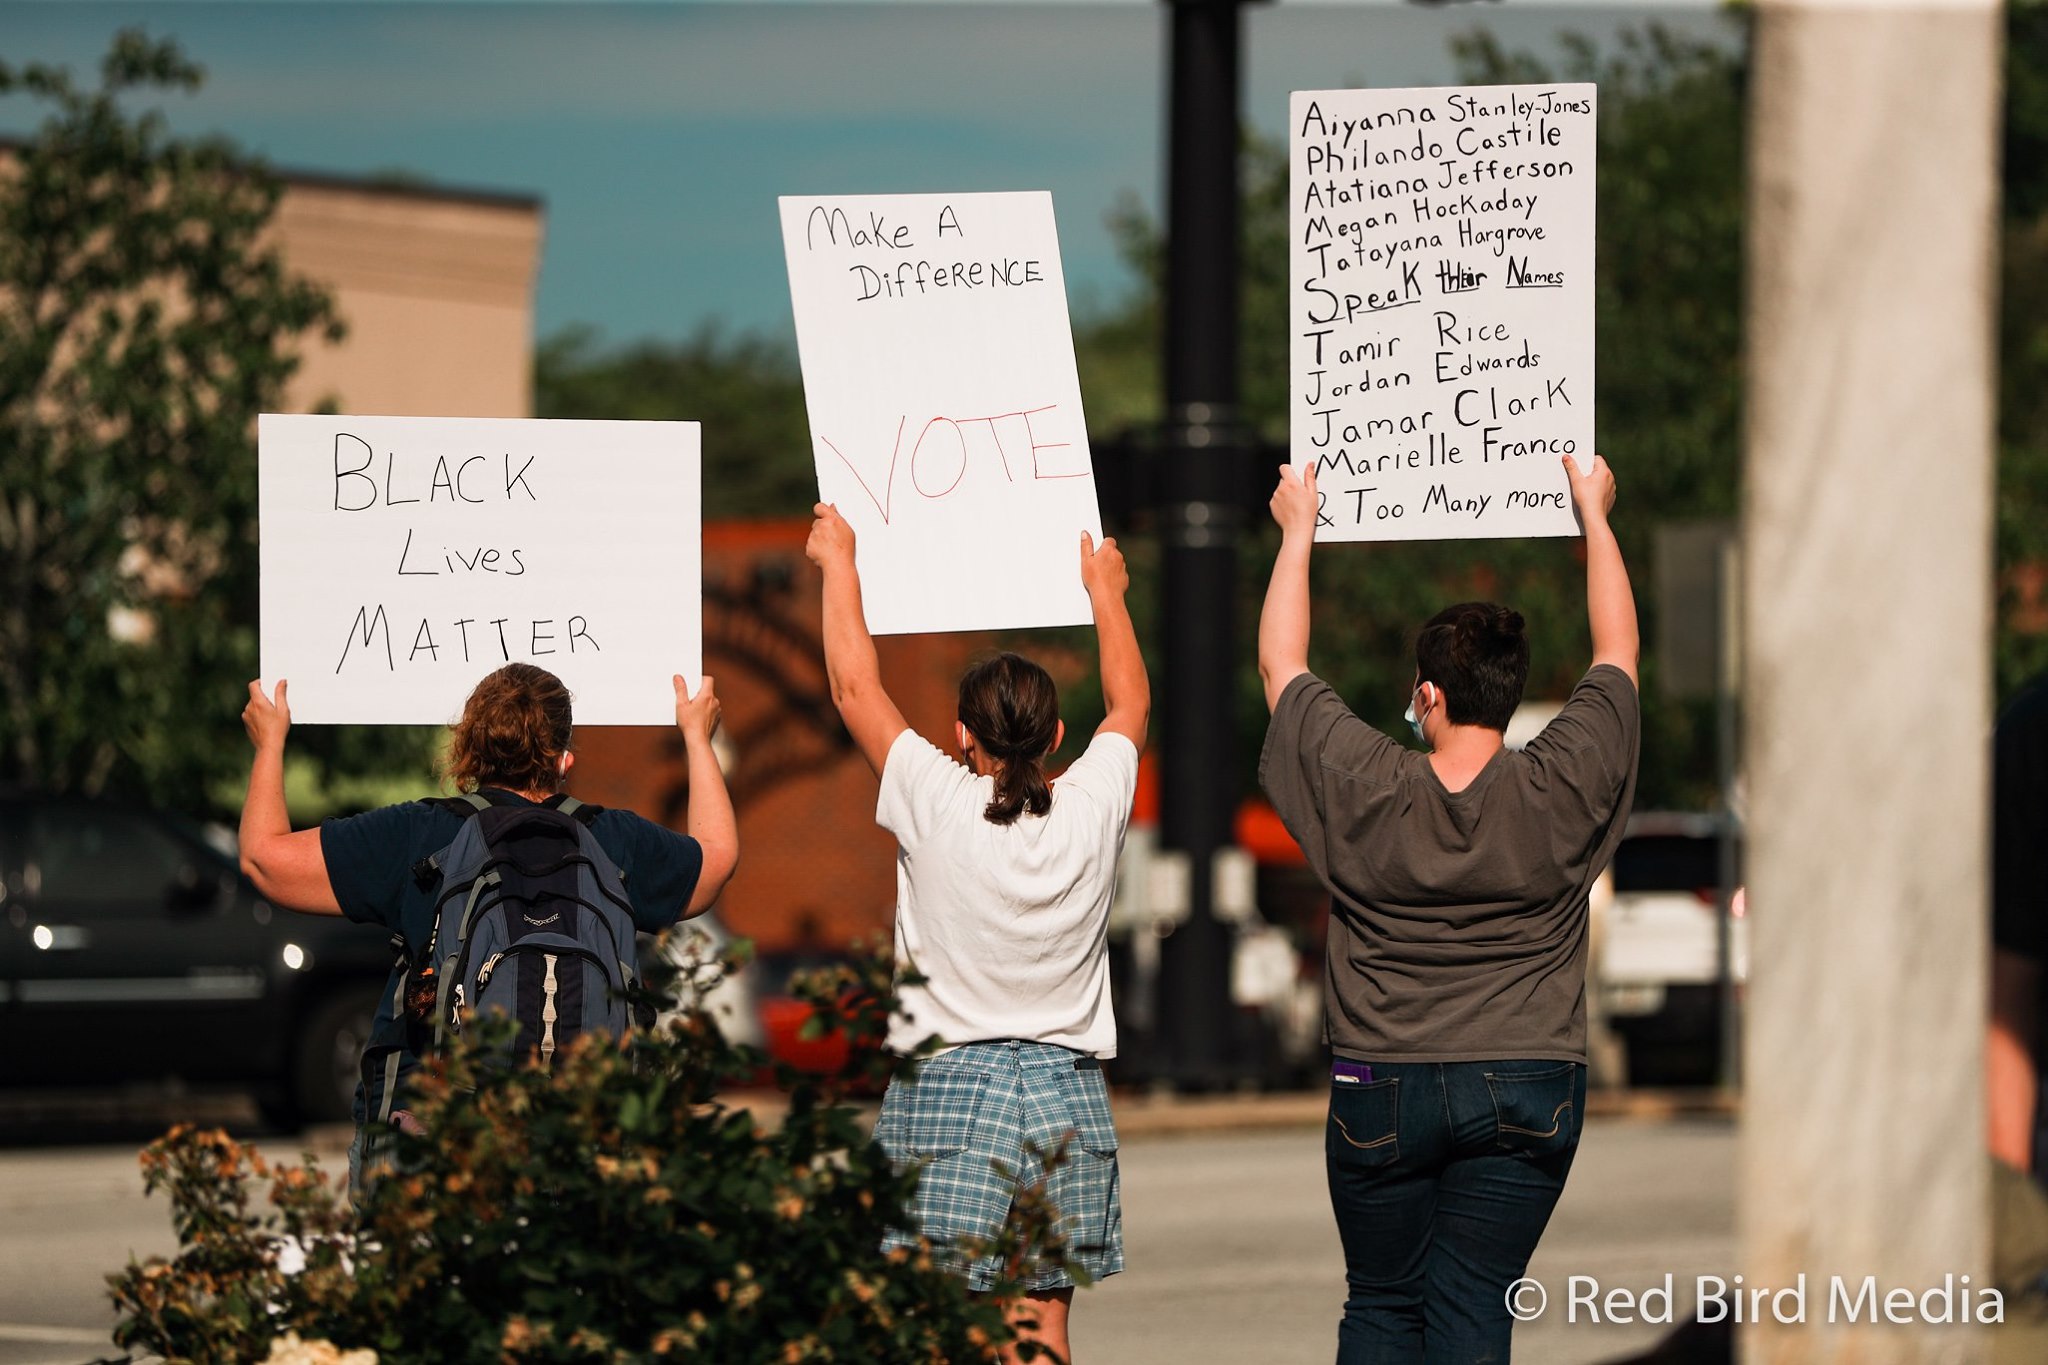 BLACK
Lives
MATTER
Make A
DiffeRENCE
VOTE
Aiyanna Stanley-Jones
Philando Castile
Atatiana Jefferson
Megan Hockaday
Tatayana Hargrove
Speak their Names
Tamir Rice
Jordan Edwards
Jamar Clark
Marielle Franco
& Too Many more
© Red Bird Media